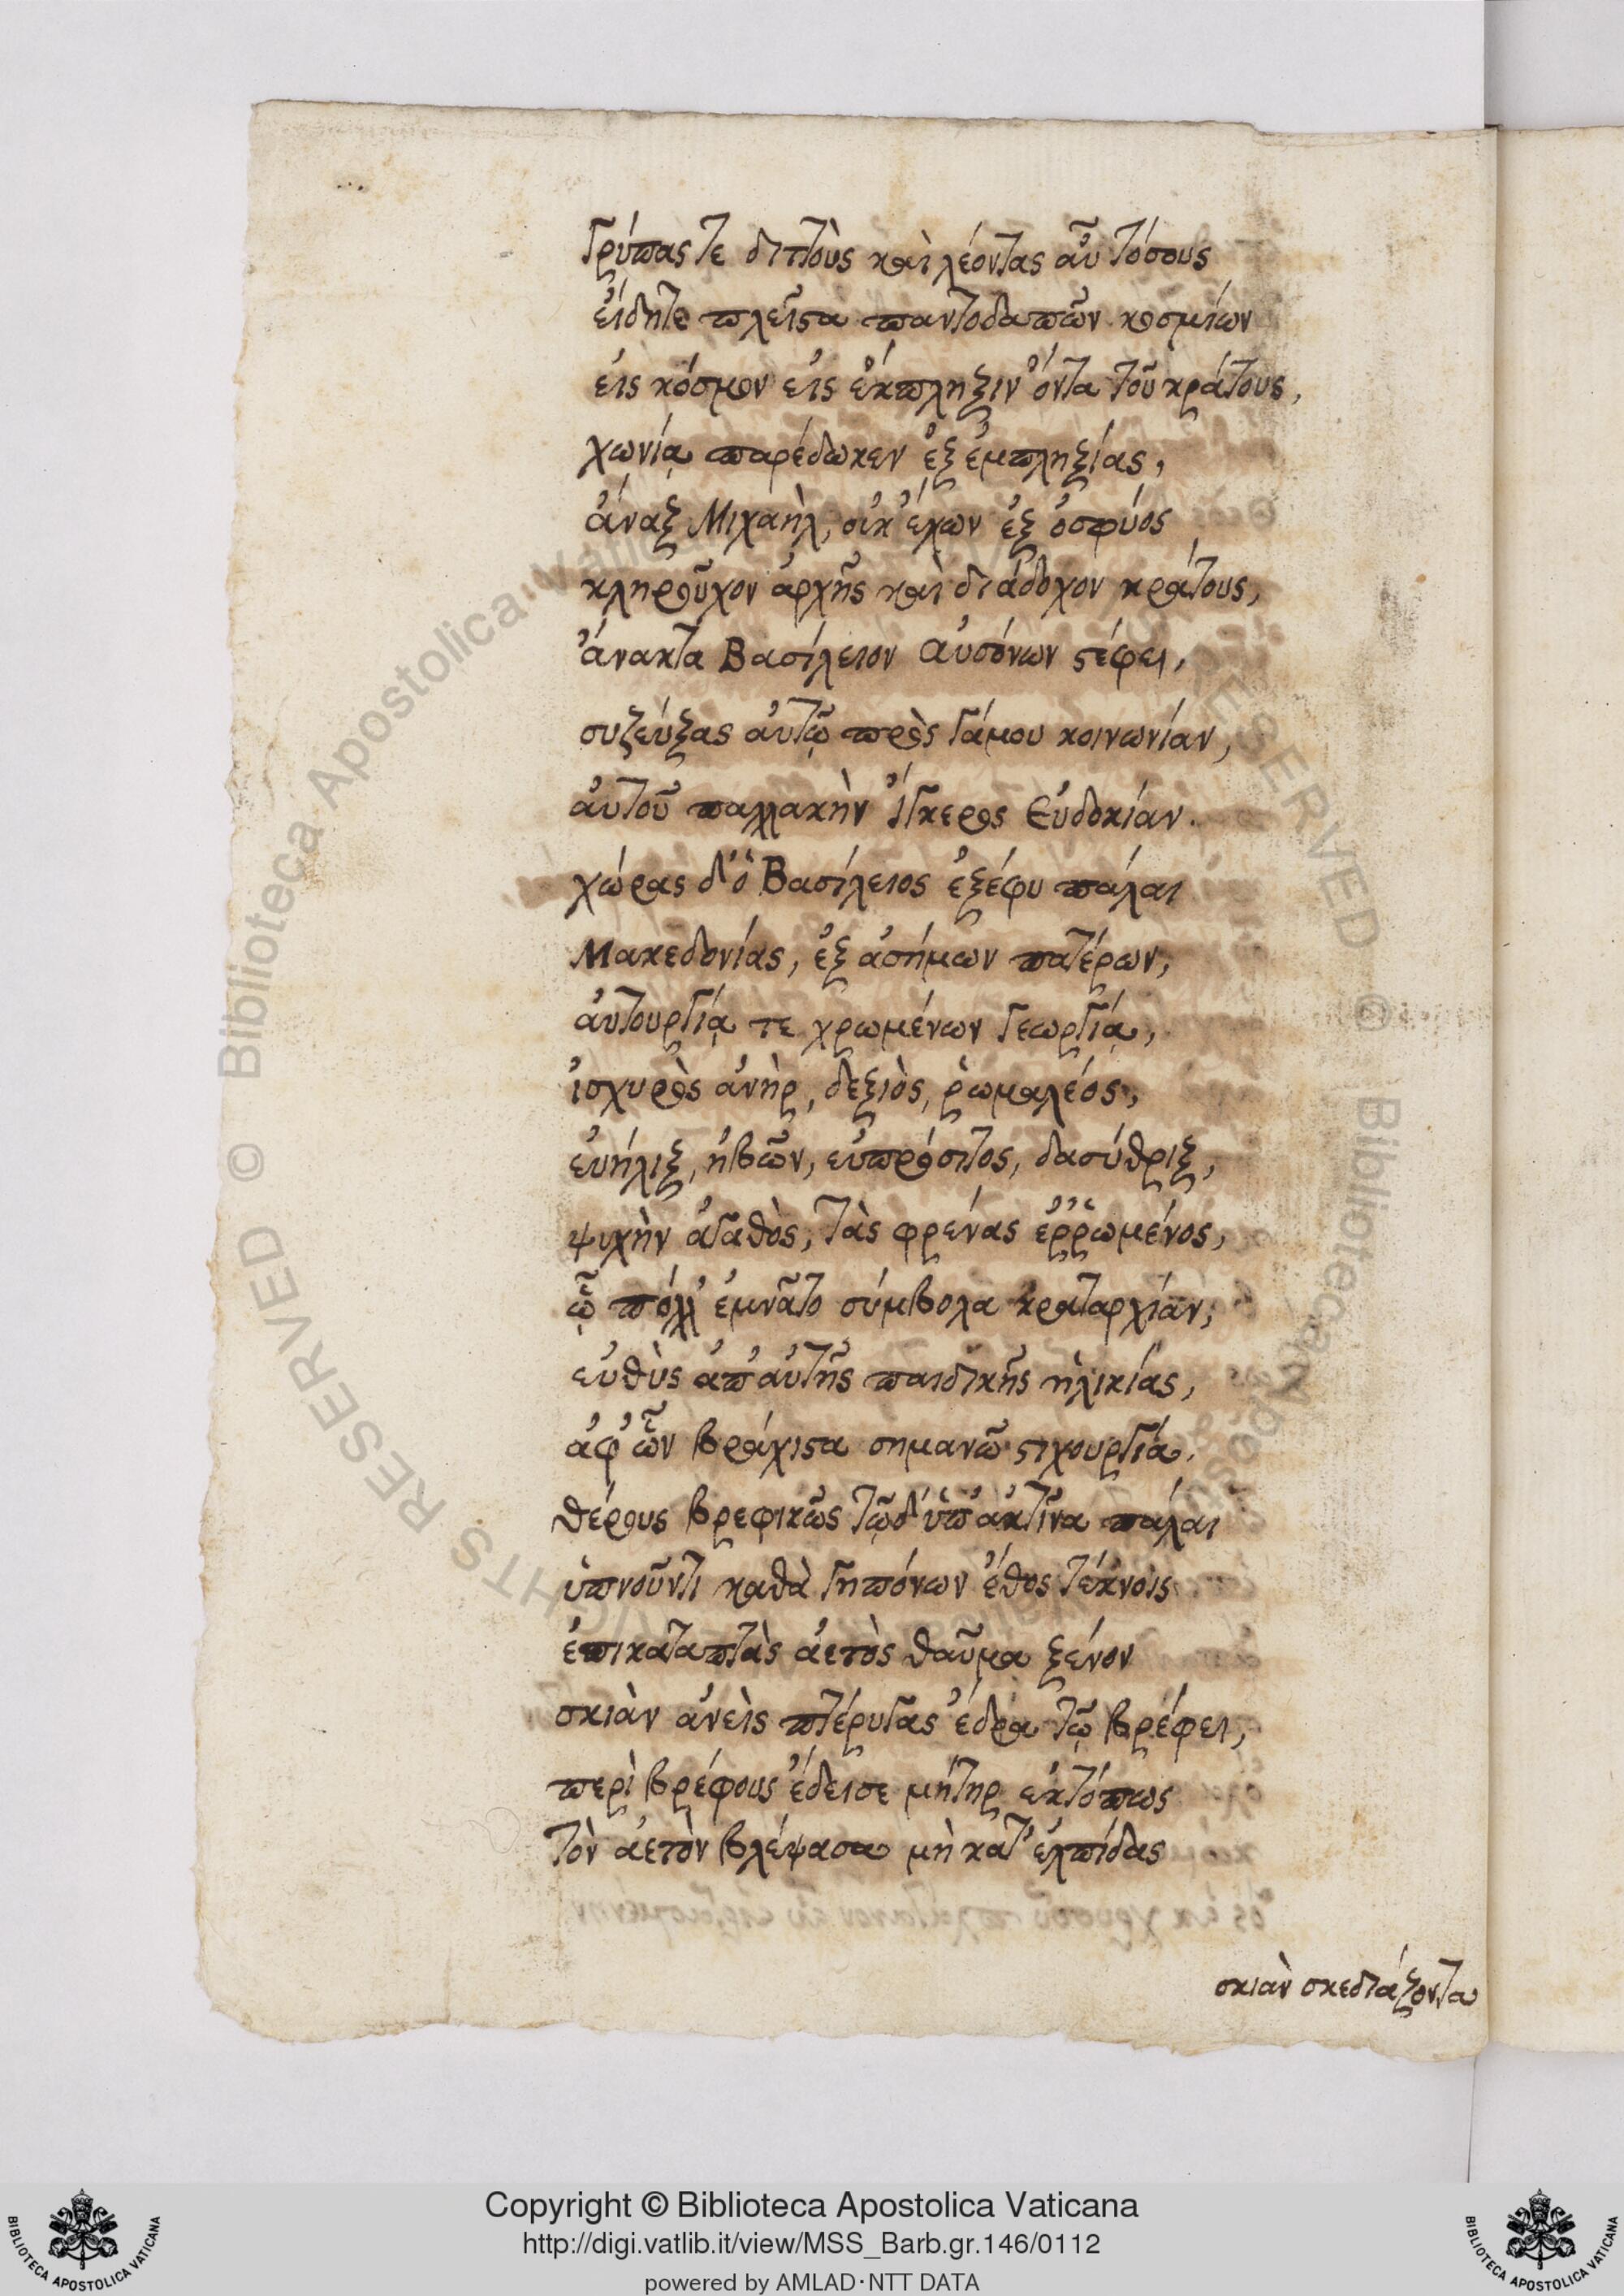 Γρύπας τε διττοὺς καὶ λέοντας αὖ τόσους
εἴδητε πλεῖστα παντοδαπῶν κοσμίων
εἰς κόσμον εἰς ἔκπληξιν ὄντα τοῦ κράτους,
χωνίᾳ παρέδωκεν ἐξ ἐμπληξίας,
ἄναξ Μιχαὴλ, οὐκ ἔχων ἐξ ὀσφύος
κληροῦχον ἀρχῆς καὶ διάδοχον κράτους,
ἄνακτα Βασίλειον Αὐσόνων στέφει,
συζεύξας αὐτῷ πρὸς γάμου κοινωνίαν,
αὐτοῦ παλλακὴν Ἴγκερος Εὐδοκίαν.
χώρας δ' ὁ Βασίλειος ἐξέφυ πάλαι
Μακεδονίας, ἐξ ἀσήμων πατέρων,
αὐτουργίᾳ τε χρωμένων γεωργίᾳ,
ἰσχυρὸς ἀνὴρ, δεξιὸς, ῥωμαλέος,
εὐήλιξ, ἡβῶν, εὐπρόσιτος, δασύθριξ,
ψυχὴν ἀγαθὸς, τὰς φρένας ἐῤῥωμένος,
ᾧ πόλλ' ἐμνᾶτο σύμβολα κραταρχίαν,
εὐθὺς ἀπ' αὐτῆς παιδικῆς ἡλικίας,
ἀφ' ὧν βράχιστα σημανῶ στιχουργίᾳ.
θέρους βρεφικῶς τῷδ' ὑπ' ἀκτῖνα πάλαι
ὑπνοῦντι καθὰ γηπόνων ἔθος τέκνοις
ἐπικαταπτὰς ἀετὸς θαῦμα ξένον
σκιὰν ἀνεὶς πτέρυγας ἕδρα τῷ βρέφει,
περὶ βρέφους ἔδεισε μήτηρ ἐκτόπως
τὸν ἀετὸν βλέψασα μὴ κατ' ἐλπίδας
σκιὰν σκεδιάζοντα
Copyright © Biblioteca Apostolica Vaticana
http://digi.vatlib.it/view/MSS_Barb.gr.146/0112
powered by AMLAD·NTT DATA